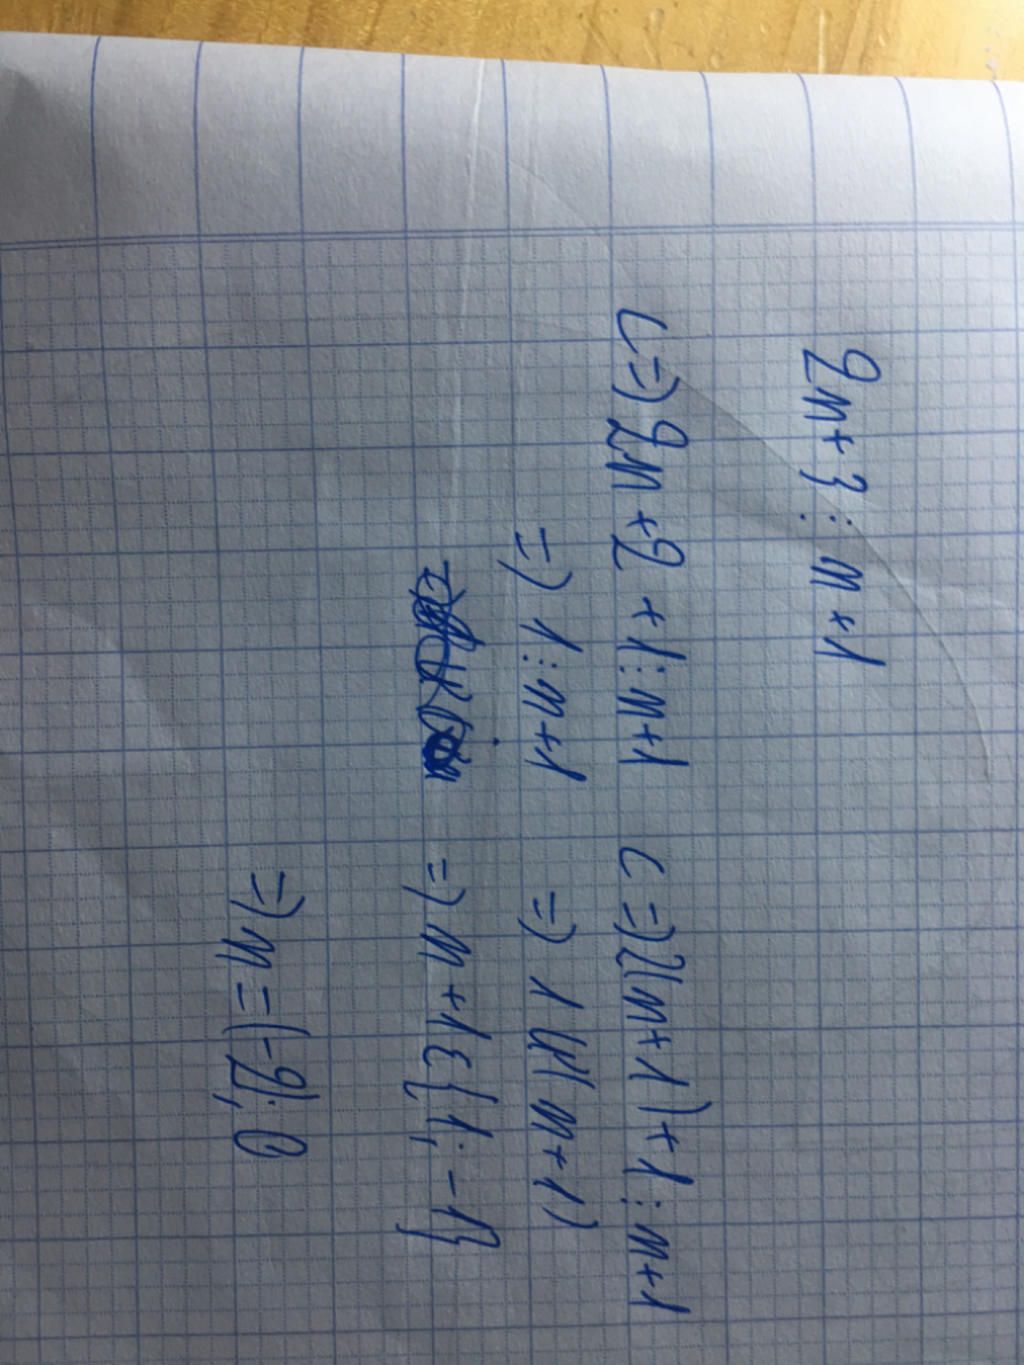 2n+3 ⋮ n+1
<=) 2n+2+1 ⋮ n+1 <=) 2(n+1)+1 ⋮ n+1
=) 1 ⋮ n+1 =) 1 Ư(n+1)
=) n+1 ε {1; -1}
=) n = (-2); 0